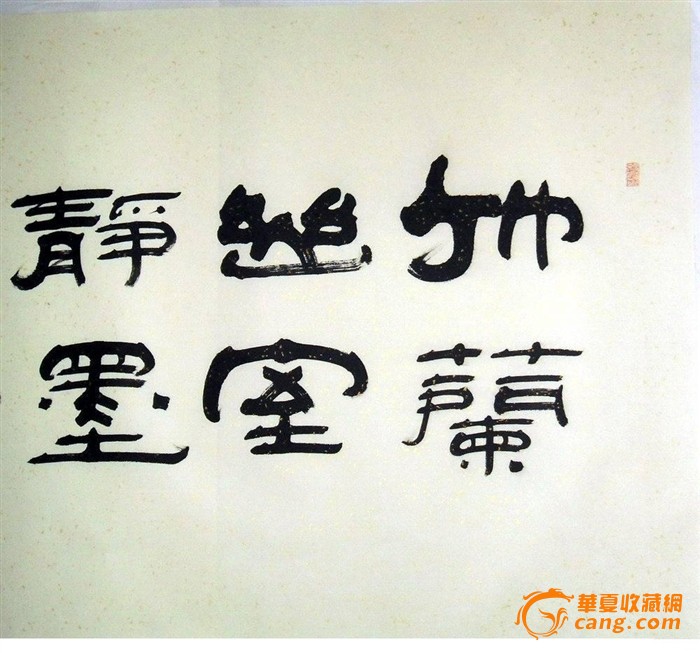 竹蘭
幽室
靜墨
華夏收藏網
cang.com